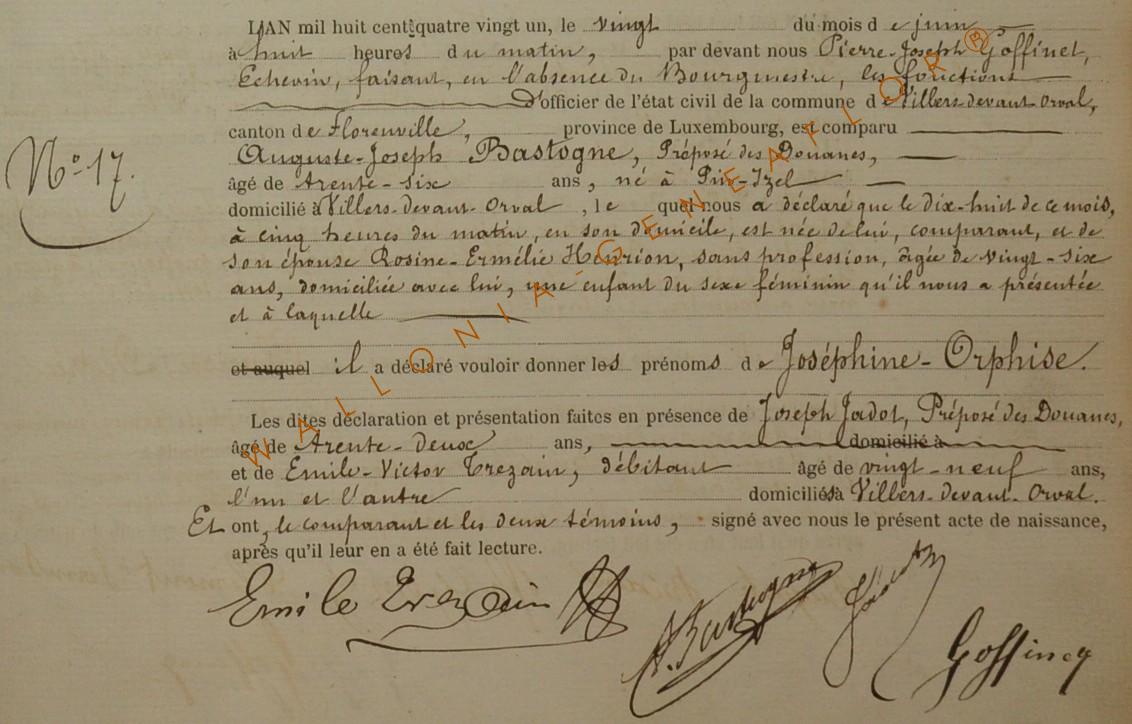 L'AN mil huit cent quatre vingt un, le vingt du mois de juin
à huit heures du matin, par devant nous Pierre-Joseph Goffinet,
Echevin, faisant, en l'absence du Bourgmestre, les fonctions
d'officier de l'état civil de la commune de Villers-devant-Orval,
canton de Florenville, province de Luxembourg, est comparu
Auguste-Joseph Bastogne, Préposé des Douanes,
N° 17.
âgé de trente-six ans, né à Pin-Izel
domicilié à Villers-devant-Orval, lequel nous a déclaré que le dix-huit de ce mois,
à cinq heures du matin, en son domicile, est née de lui, comparant, et de
son épouse Rosine-Ermélie Henrion, sans profession, âgée de vingt-six
ans, domiciliée avec lui, une enfant du sexe féminin qu'il nous a présentée
et à laquelle
et auquel il a déclaré vouloir donner les prénoms de Joséphine-Orphise.
Les dites déclaration et présentation faites en présence de Joseph Jadot, Préposé des Douanes,
âgé de trente-deux ans, domicilié à
et de Emile-Victor Trezain, débitant âgé de vingt-neuf ans,
l'un et l'autre domiciliés à Villers-devant-Orval.
Et ont, le comparant et les deux témoins, signé avec nous le présent acte de naissance,
après qu'il leur en a été fait lecture.
Emile Trezain A. Bastogne Goffinet
WALLONIA-GENEALOR®